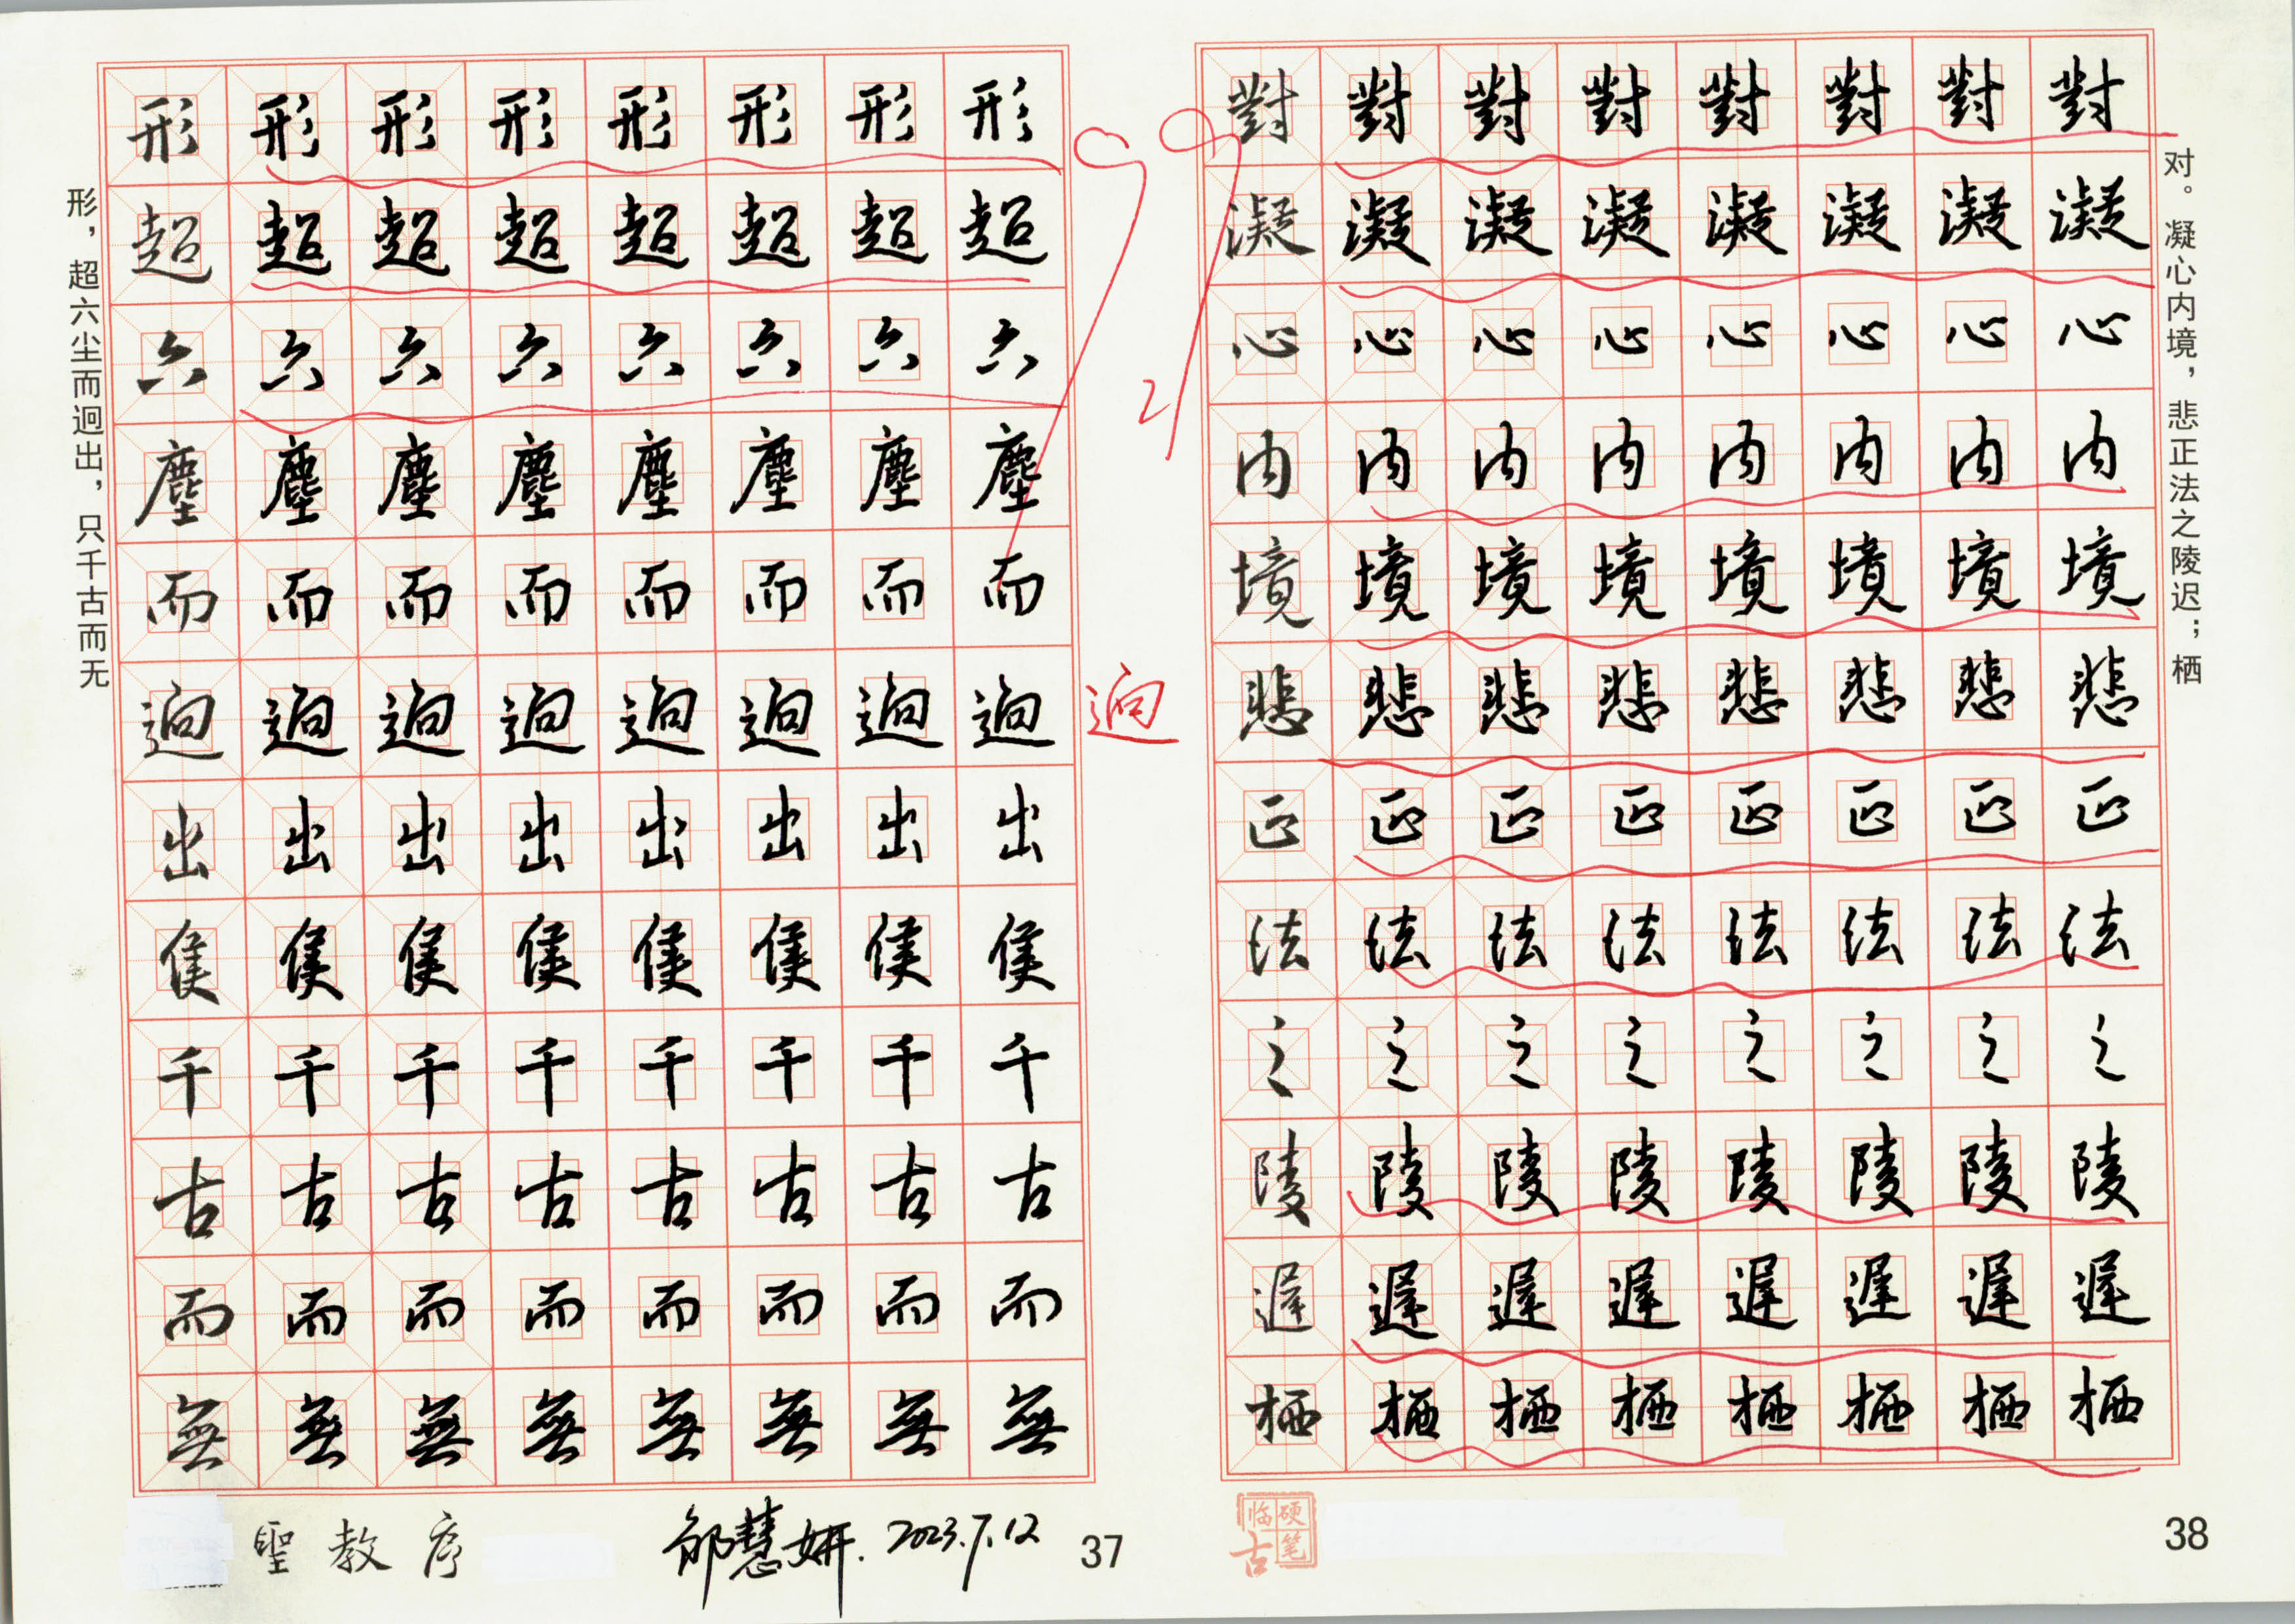 形 形 形 形 形 形 形 形
超 超 超 超 超 超 超 超
六 六 六 六 六 六 六 六
塵 塵 塵 塵 塵 塵 塵 塵
而 而 而 而 而 而 而 而
迥 迥 迥 迥 迥 迥 迥 迥
出 出 出 出 出 出 出 出
隻 隻 隻 隻 隻 隻 隻 隻
千 千 千 千 千 千 千 千
古 古 古 古 古 古 古 古
而 而 而 而 而 而 而 而
無 無 無 無 無 無 無 無
形，超六尘而迥出，只千古而无
迥
99
21
聖教序
邹慧妍. 2023.7.12
37
對 對 對 對 對 對 對 對
凝 凝 凝 凝 凝 凝 凝 凝
心 心 心 心 心 心 心 心
内 内 内 内 内 内 内 内
境 境 境 境 境 境 境 境
悲 悲 悲 悲 悲 悲 悲 悲
正 正 正 正 正 正 正 正
法 法 法 法 法 法 法 法
之 之 之 之 之 之 之 之
陵 陵 陵 陵 陵 陵 陵 陵
遲 遲 遲 遲 遲 遲 遲 遲
栖 栖 栖 栖 栖 栖 栖 栖
对。凝心内境，悲正法之陵迟；栖
硬笔临古
38